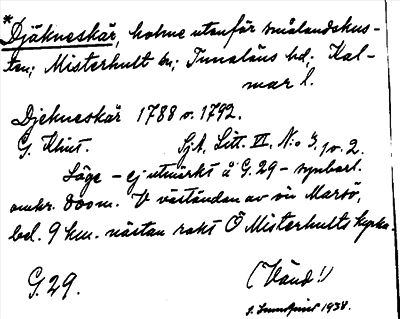 *Djäkneskär, holme utanför smålandskus-
ten; Misterhult sn; Tunaläns hd; Kal-
mar l.
Djekneskär 1788 o. 1792.
G. Klint. Sjk. Litt. VI. N:o 3, o. 2.
Läge - ej utmärkt å G. 29 - synbarl.
omkr. 800 m. V väständen av ön Marsö,
bel. 9 km. nästan rakt Ö Misterhults kyrka.
G. 29. (Vänd!)
1938.